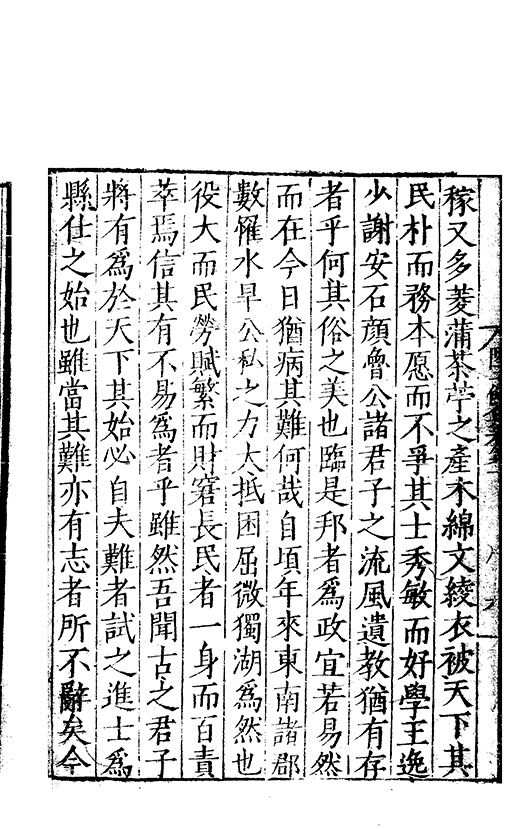 稼又多菱蒲茶苧之產木綿文綾衣被天下其
民朴而務本愿而不爭其士秀敏而好學王逸
少謝安石顏魯公諸君子之流風遺教猶有存
者乎何其俗之美也臨是邦者為政宜若易然
而在今日猶病其難何哉自頃年來東南諸郡
數罹水旱公私之力大抵困屈微獨湖為然也
役大而民勞賦繁而財窘長民者一身而百責
萃焉信其有不易為者乎雖然吾聞古之君子
將有為於天下其始必自夫難者試之進士為
縣仕之始也雖當其難亦有志者所不辭矣今